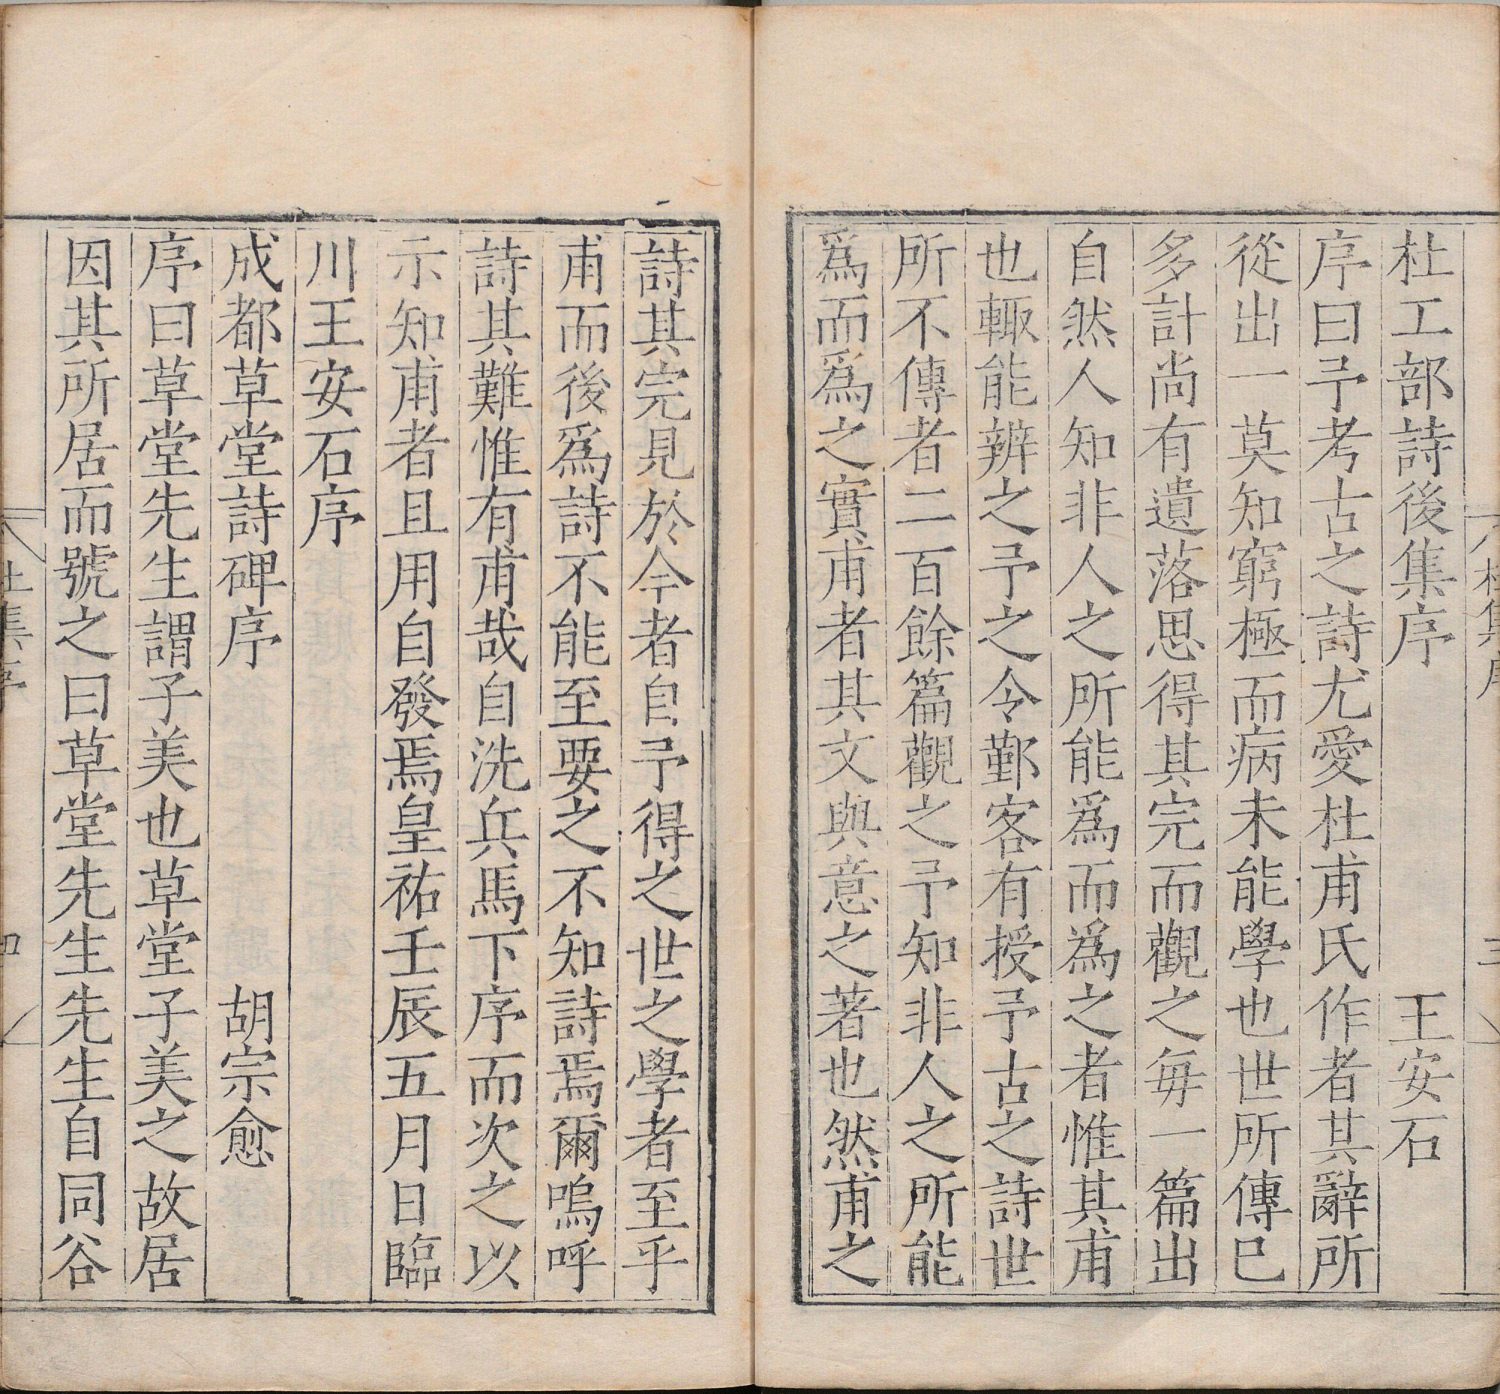 杜工部詩後集序　　　　　王安石
序曰予考古之詩尤愛杜甫氏作者其辭所
從出一莫知窮極而病未能學也世所傳已
多計尚有遺落思得其完而觀之每一篇出
自然人知非人之所能爲而爲之者惟其甫
也輙能辨之予之令鄞客有授予古之詩世
所不傳者二百餘篇觀之予知非人之所能
爲而爲之實甫者其文與意之著也然甫之
詩其完見於今者自予得之世之學者至乎
甫而後爲詩不能至要之不知詩焉爾嗚呼
詩其難惟有甫哉自洗兵馬下序而次之以
示知甫者且用自發焉皇祐壬辰五月日臨
川王安石序
成都草堂詩碑序　　　　　胡宗愈
序曰草堂先生謂子美也草堂子美之故居
因其所居而號之曰草堂先生先生自同谷